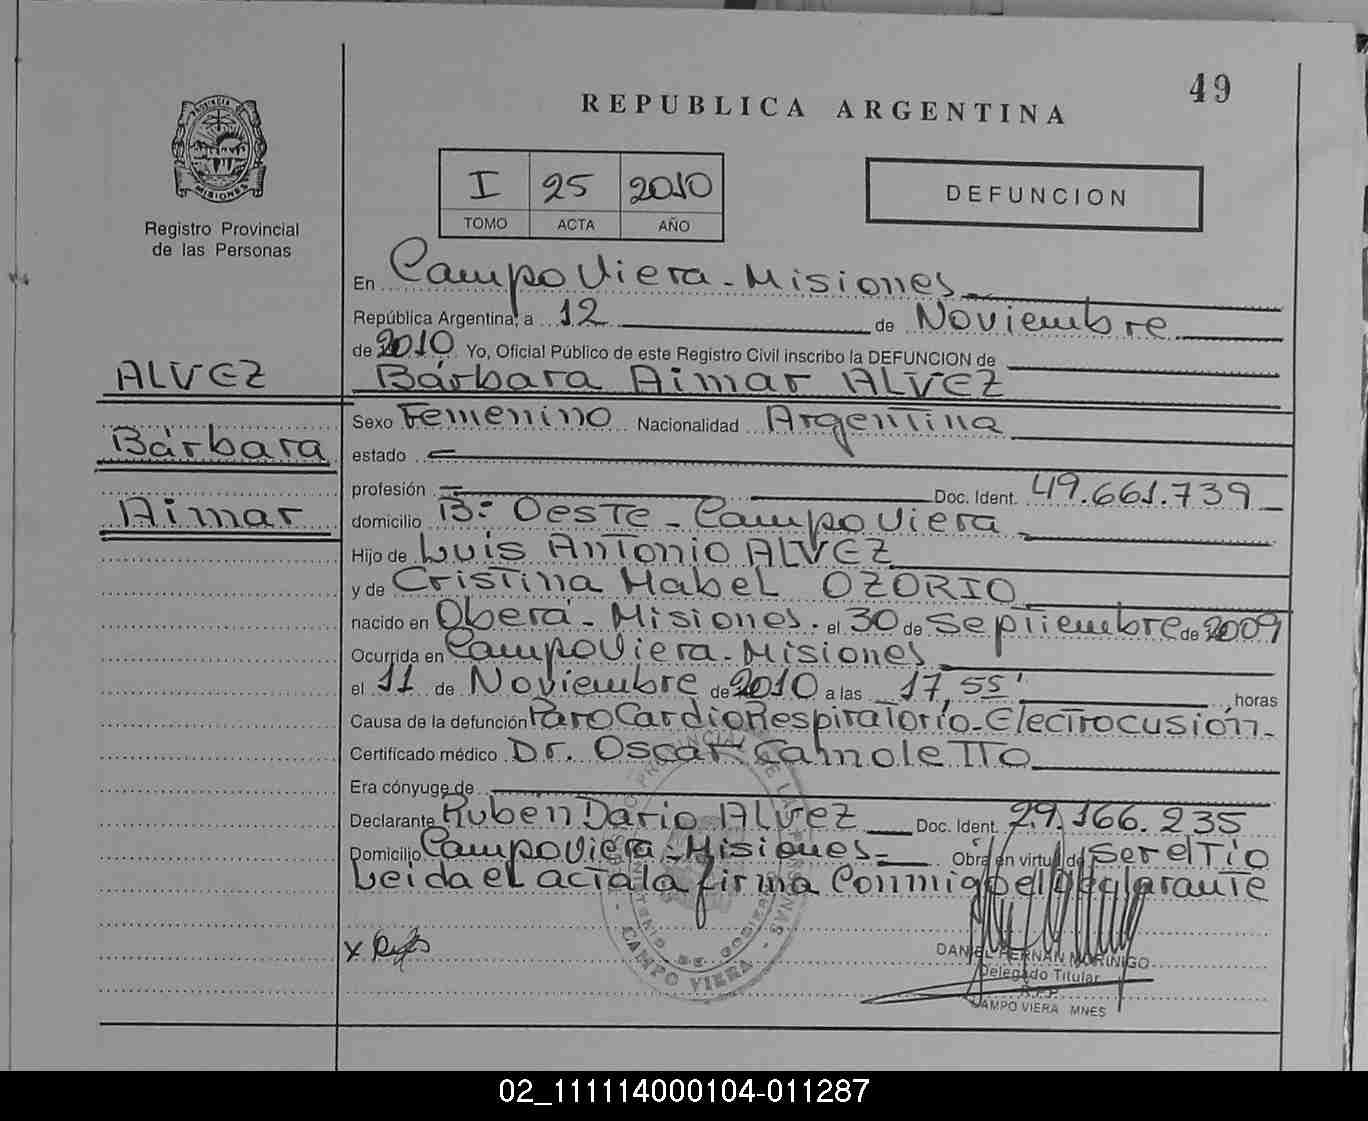 49
REPUBLICA ARGENTINA
PROVINCIA DE
MISIONES
Registro Provincial
de las Personas
I 25 2010
TOMO ACTA AÑO
DEFUNCION
En Campo Viera - Misiones
República Argentina, a 12 de Noviembre
de 2010 Yo, Oficial Público de este Registro Civil inscribo la DEFUNCION de
ALVEZ Bárbara Aimar ALVEZ
Sexo Femenino Nacionalidad Argentina
Bárbara
estado
profesión Doc. Ident. 49.661.739
Aimar
domicilio B: Oeste - Campo Viera
Hijo de Luis Antonio ALVEZ
y de Cristina Mabel OZORIO
nacido en Oberá - Misiones. el 30 de Septiembre de 2009
Ocurrida en Campo Viera - Misiones
el 11 de Noviembre de 2010 a las 17,55' horas
Causa de la defunción Paro Cardio Respiratorio - Electrocusión -
Certificado médico Dr. Oscar Camoletto
Era cónyuge de
Declarante Ruben Dario Alvez Doc. Ident. 29.166.235
Domicilio Campo Viera - Misiones - Obra en virtud de Ser el Tío
Leida el acta la firma Conmigo el Declarante
x
DANIEL HERNAN MORINIGO
Delegado Titular
R.P.P.
CAMPO VIERA MNES
CAMPO VIERA
02_111114000104-011287